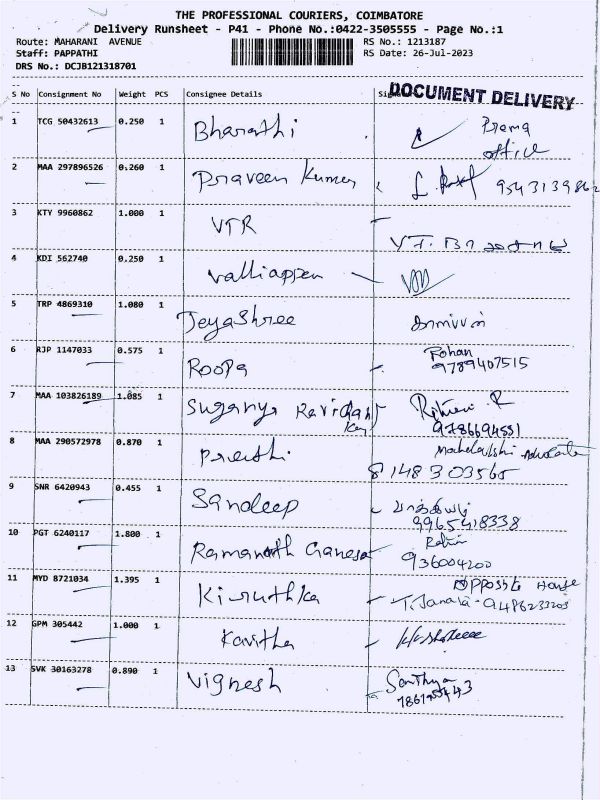 THE PROFESSIONAL COURIERS, COIMBATORE
Delivery Runsheet - P41 - Phone No.:0422-3505555 - Page No.:1
Route: MAHARANI AVENUE RS No.: 1213187
Staff: PAPPATHI RS Date: 26-Jul-2023
DRS No.: DCJB121318701
DOCUMENT DELIVERY
S No Consignment No Weight PCS Consignee Details
1 TCG 50432613 0.250 1 Bharathi Prema
office
2 MAA 297896526 0.260 1 Praveen Kumar
3 KTY 9960862 1.000 1 VTR
4 KDI 562740 0.250 1 Valliappan
5 TRP 4869310 1.080 1 JeyaShree
6 RJP 1147033 0.575 1 Roopa Rohan
9789407515
7 MAA 103826189 1.085 1 Suganya
8 MAA 290572978 0.870 1 Preethi
9 SNR 6420943 0.455 1 Sandeep
9965418338
10 PGT 6240117 1.800 1 Ramanath Ganesa
936004200
11 MYD 8721034 1.395 1 Kiruthka opposite House
T. Janara - 9486233203
12 GPM 305442 1.000 1 Kavitha
13 SVK 30163278 0.890 1 Vignesh Santhya